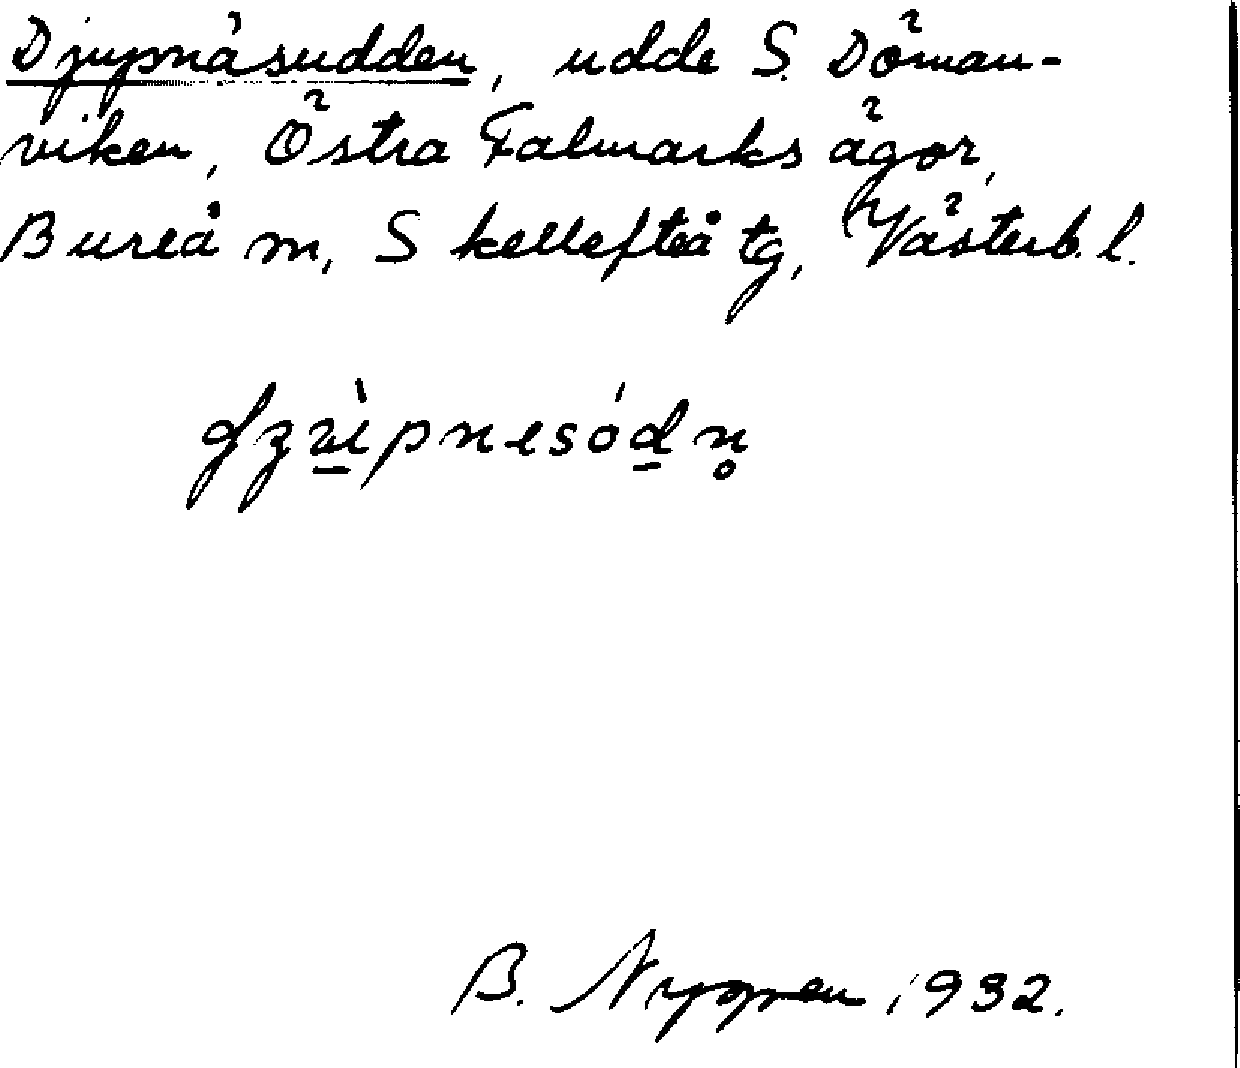 Djupnäsudden, udde S. Döman-
viken, Östra Falmarks ägor,
Bureå sn, Skellefteå tg, Västerb. l.
B. Nygren 1932.